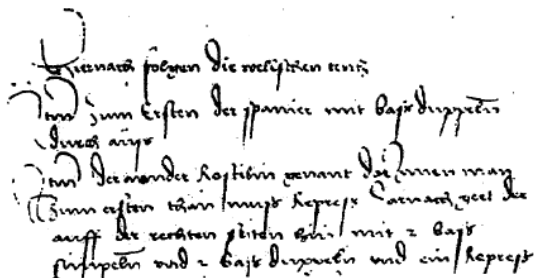 Hiernach folgen die welschen tentz
Jtm zum Ersten der spanier mit bass dupplin
durch auss
Jtm der ander Rostibin genant der Zumen man
Zum ersten than muss Repress Darnach geet der
auff der rechten seiten hin mit 2 bass
sumpeln vnd 2 bass duppeln vnd ein Repress